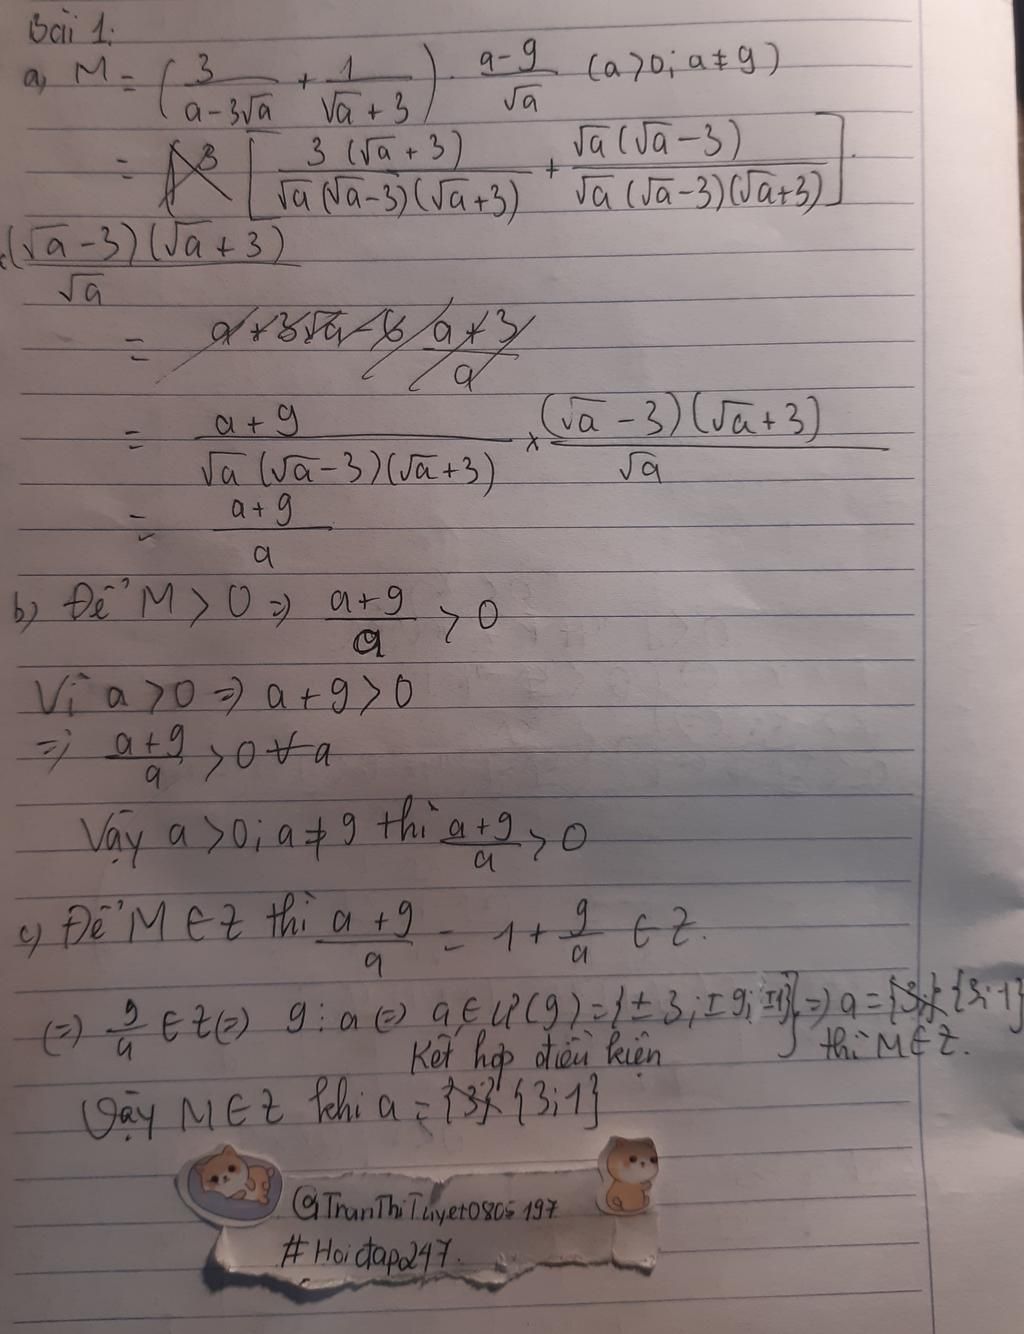 Bài 1:
a, M = (3/(a-3√a) + 1/(√a+3)) . (a-9)/√a (a>0; a≠9)
= [3(√a+3)/(√a(√a-3)(√a+3)) + √a(√a-3)/(√a(√a-3)(√a+3))].
(√a-3)(√a+3)/√a
= (a+9)/(√a(√a-3)(√a+3)) × (√a-3)(√a+3)/√a
= (a+9)/a
b, Để M > 0 => (a+9)/a > 0
Vì a>0 => a+9>0
=> (a+9)/a >0 ∀ a
Vậy a>0; a≠9 thì (a+9)/a > 0
c, Để M ∈ Z thì (a+9)/a = 1 + 9/a ∈ Z.
(=) 9/a ∈ Z (=) 9 ⋮ a (=) a ∈ Ư(9) = {±3; ±9; ±1} => a = {3;1}
Kết hợp điều kiện thì M∈Z.
Vậy M∈Z khi a = {3;1}
@TranThiTuyet0805197
#Hoidap247.